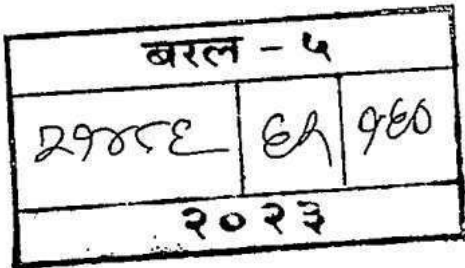 बरल - ५
२१४८६ ६२ १६०
२०२३